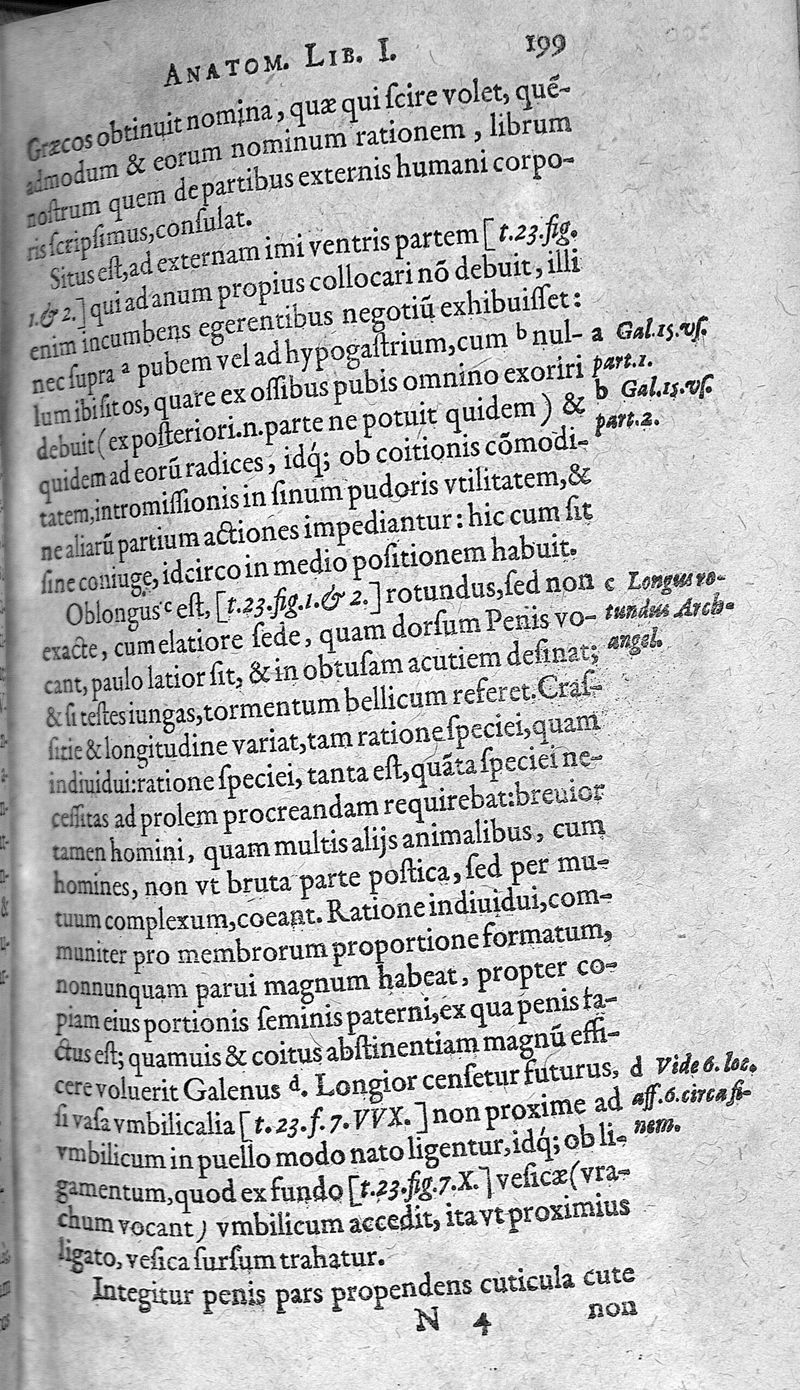 ANATOM. LIB. I. 199
Græcos obtinuit nomina, quæ qui ſcire volet, quẽ-
admodum & eorum nominum rationem, librum
noſtrum quem de partibus externis humani corpo-
ris ſcripſimus, conſulat.
Situs eſt, ad externam imi ventris partem [t.23.fig.
1.& 2.] qui ad anum propius collocari nõ debuit, illi
enim incumbens egerentibus negotiũ exhibuiſſet:
nec ſupra ᵃ pubem vel ad hypogaſtrium, cum ᵇ nul-
lum ibi ſit os, quare ex oſſibus pubis omnino exoriri
debuit (ex poſteriori.n.parte ne potuit quidem) &
quidem ad eorũ radices, idq́; ob coitionis cõmodi-
tatem, intromiſſionis in ſinum pudoris vtilitatem, &
ne aliarũ partium actiones impediantur: hic cum ſit
ſine coniuge, idcirco in medio poſitionem habuit.
Oblongus ᶜ eſt, [t.23.fig.1.& 2.] rotundus, ſed non
exacte, cum elatiore ſede, quam dorſum Penis vo-
cant, paulo latior ſit, & in obtuſam acutiem deſinat;
& ſi teſtes iungas, tormentum bellicum referet. Craſ-
ſitie & longitudine variat, tam ratione ſpeciei, quam
indiuidui: ratione ſpeciei, tanta eſt, quãta ſpeciei ne-
ceſſitas ad prolem procreandam requirebat: breuior
tamen homini, quam multis alijs animalibus, cum
homines, non vt bruta parte poſtica, ſed per mu-
tuum complexum, coeant. Ratione indiuidui, com-
muniter pro membrorum proportione formatum,
nonnunquam parui magnum habeat, propter co-
piam eius portionis ſeminis paterni, ex qua penis fa-
ctus eſt; quamuis & coitus abſtinentiam magnũ effi-
cere voluerit Galenus ᵈ. Longior cenſetur futurus,
ſi vaſa vmbilicalia [t.23.f.7.VVX.] non proxime ad
vmbilicum in puello modo nato ligentur, idq́; ob li-
gamentum, quod ex fundo [t.23.fig.7.X.] veſicæ (vra-
chum vocant) vmbilicum accedit, ita vt proximius
ligato, veſica ſurſum trahatur.
Integitur penis pars propendens cuticula cute
N 4 non
a Gal.15.vſ.
part.1.
b Gal.15.vſ.
part.2.
c Longus ro-
tundus Arch-
angel.
d Vide 6. loc.
aff.6.circa fi-
nem.